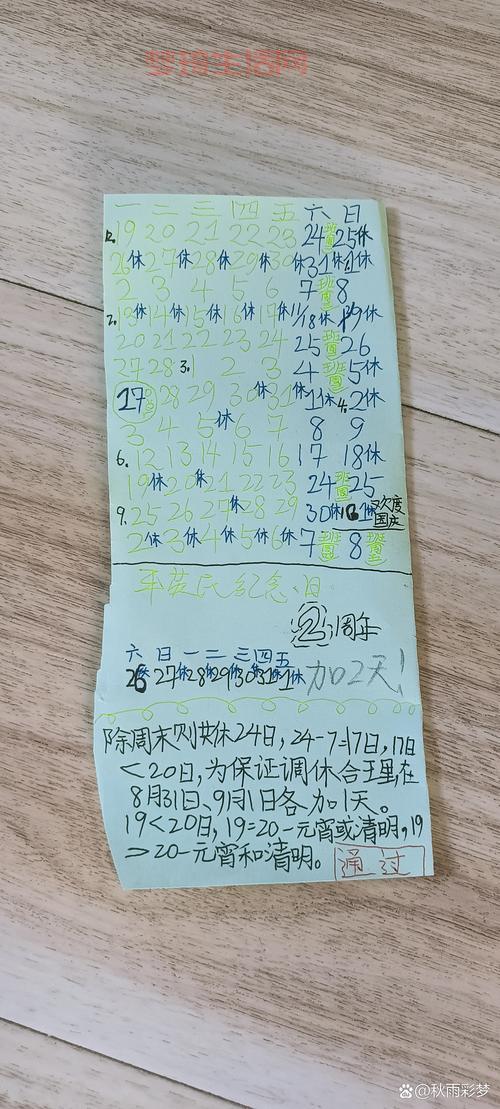 梦琦生活网
一 二 三 四 五 六 日
12. 19 20 21 22 23 24班 25休
26休 27休 28休 29休 30休 31休 1休
2 3 4 5 6 7班 8
2. 13休 14休 15休 16休 17休 18休 19休
20 21 22 23 24 25班 26
27 28 3. 1 2 3 4班 5休
27 28 29 30休 31休 1休 4. 2休
3 4 5休 6 7 8 9
6. 12 13 14 15 16 17 18休
19休 20休 21 22 23 24班 25
9. 25 26 27休 28 29 30休 10. 1休 欢度国庆
2休 3休 4休 5休 6休 7班 8班
平英民纪念日
2周年
六 日 一 二 三 四 五
26休 27休 28休 29休 30休 31休 1休 加2天!
除周末则共休24日,24-7=17日,17日
<20日,为保证调休合王里,在
8月31日、9月1日各加1天。
19<20日,19=20-元宵或清明,19
>20-元宵和清明。 通过
秋雨彩梦